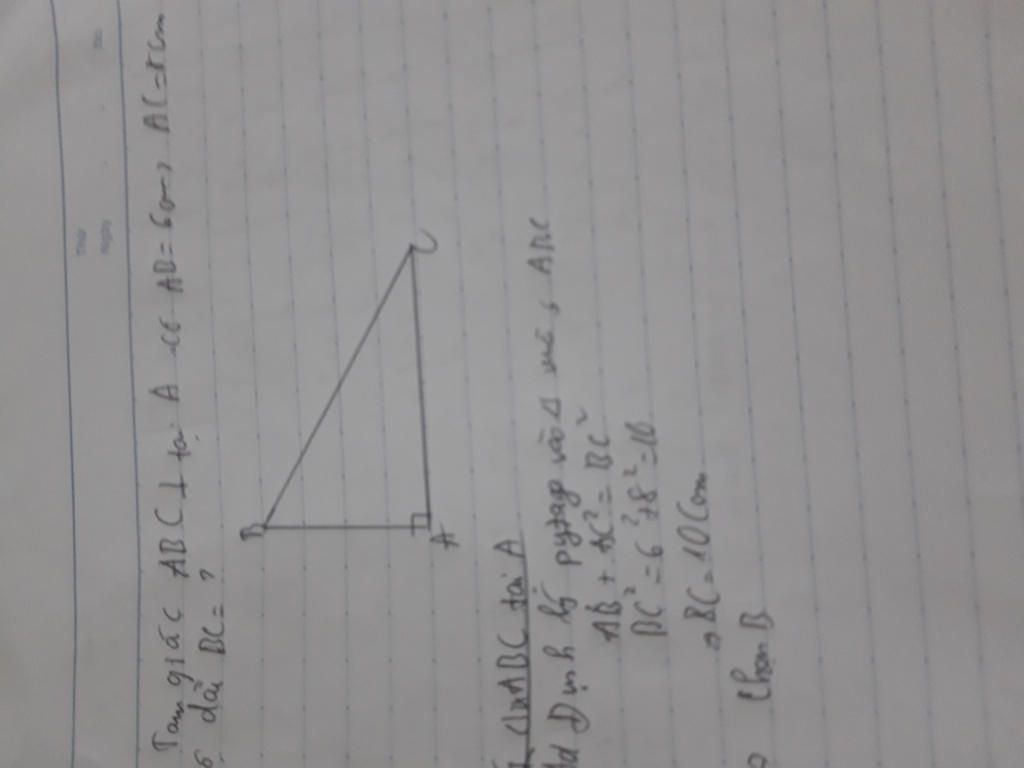 Thứ
Ngày
Tam giác ABC ⊥ tại A có AB = 6cm, AC = 8cm
dài BC = ?
B
A
C
ABC tại A
Định lý pytago vào Δ ABC
AB + AC² = BC²
BC² = 6² + 8² = 10
⇒ BC = 10 Cm
Chọn B